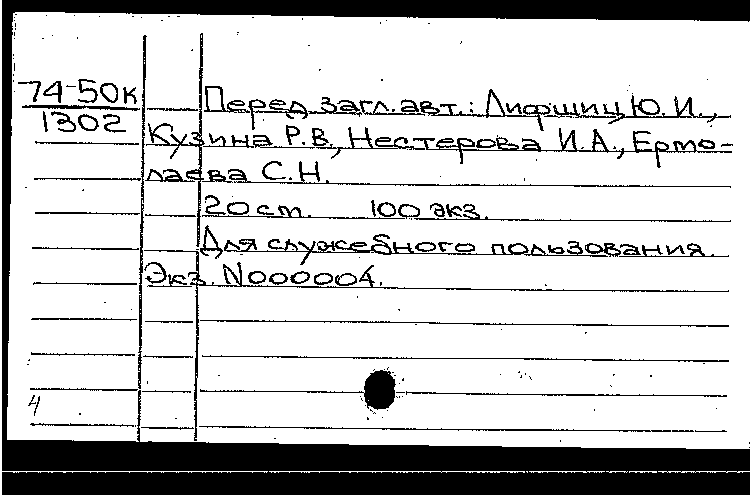 74-50к
1302
Перед загл. авт.: Лифшиц Ю. И.,
Кузина Р. В., Нестерова И. А., Ермо-
лаева С. Н.
20 ст. 100 экз.
Для служебного пользования.
Экз. N000004.
4